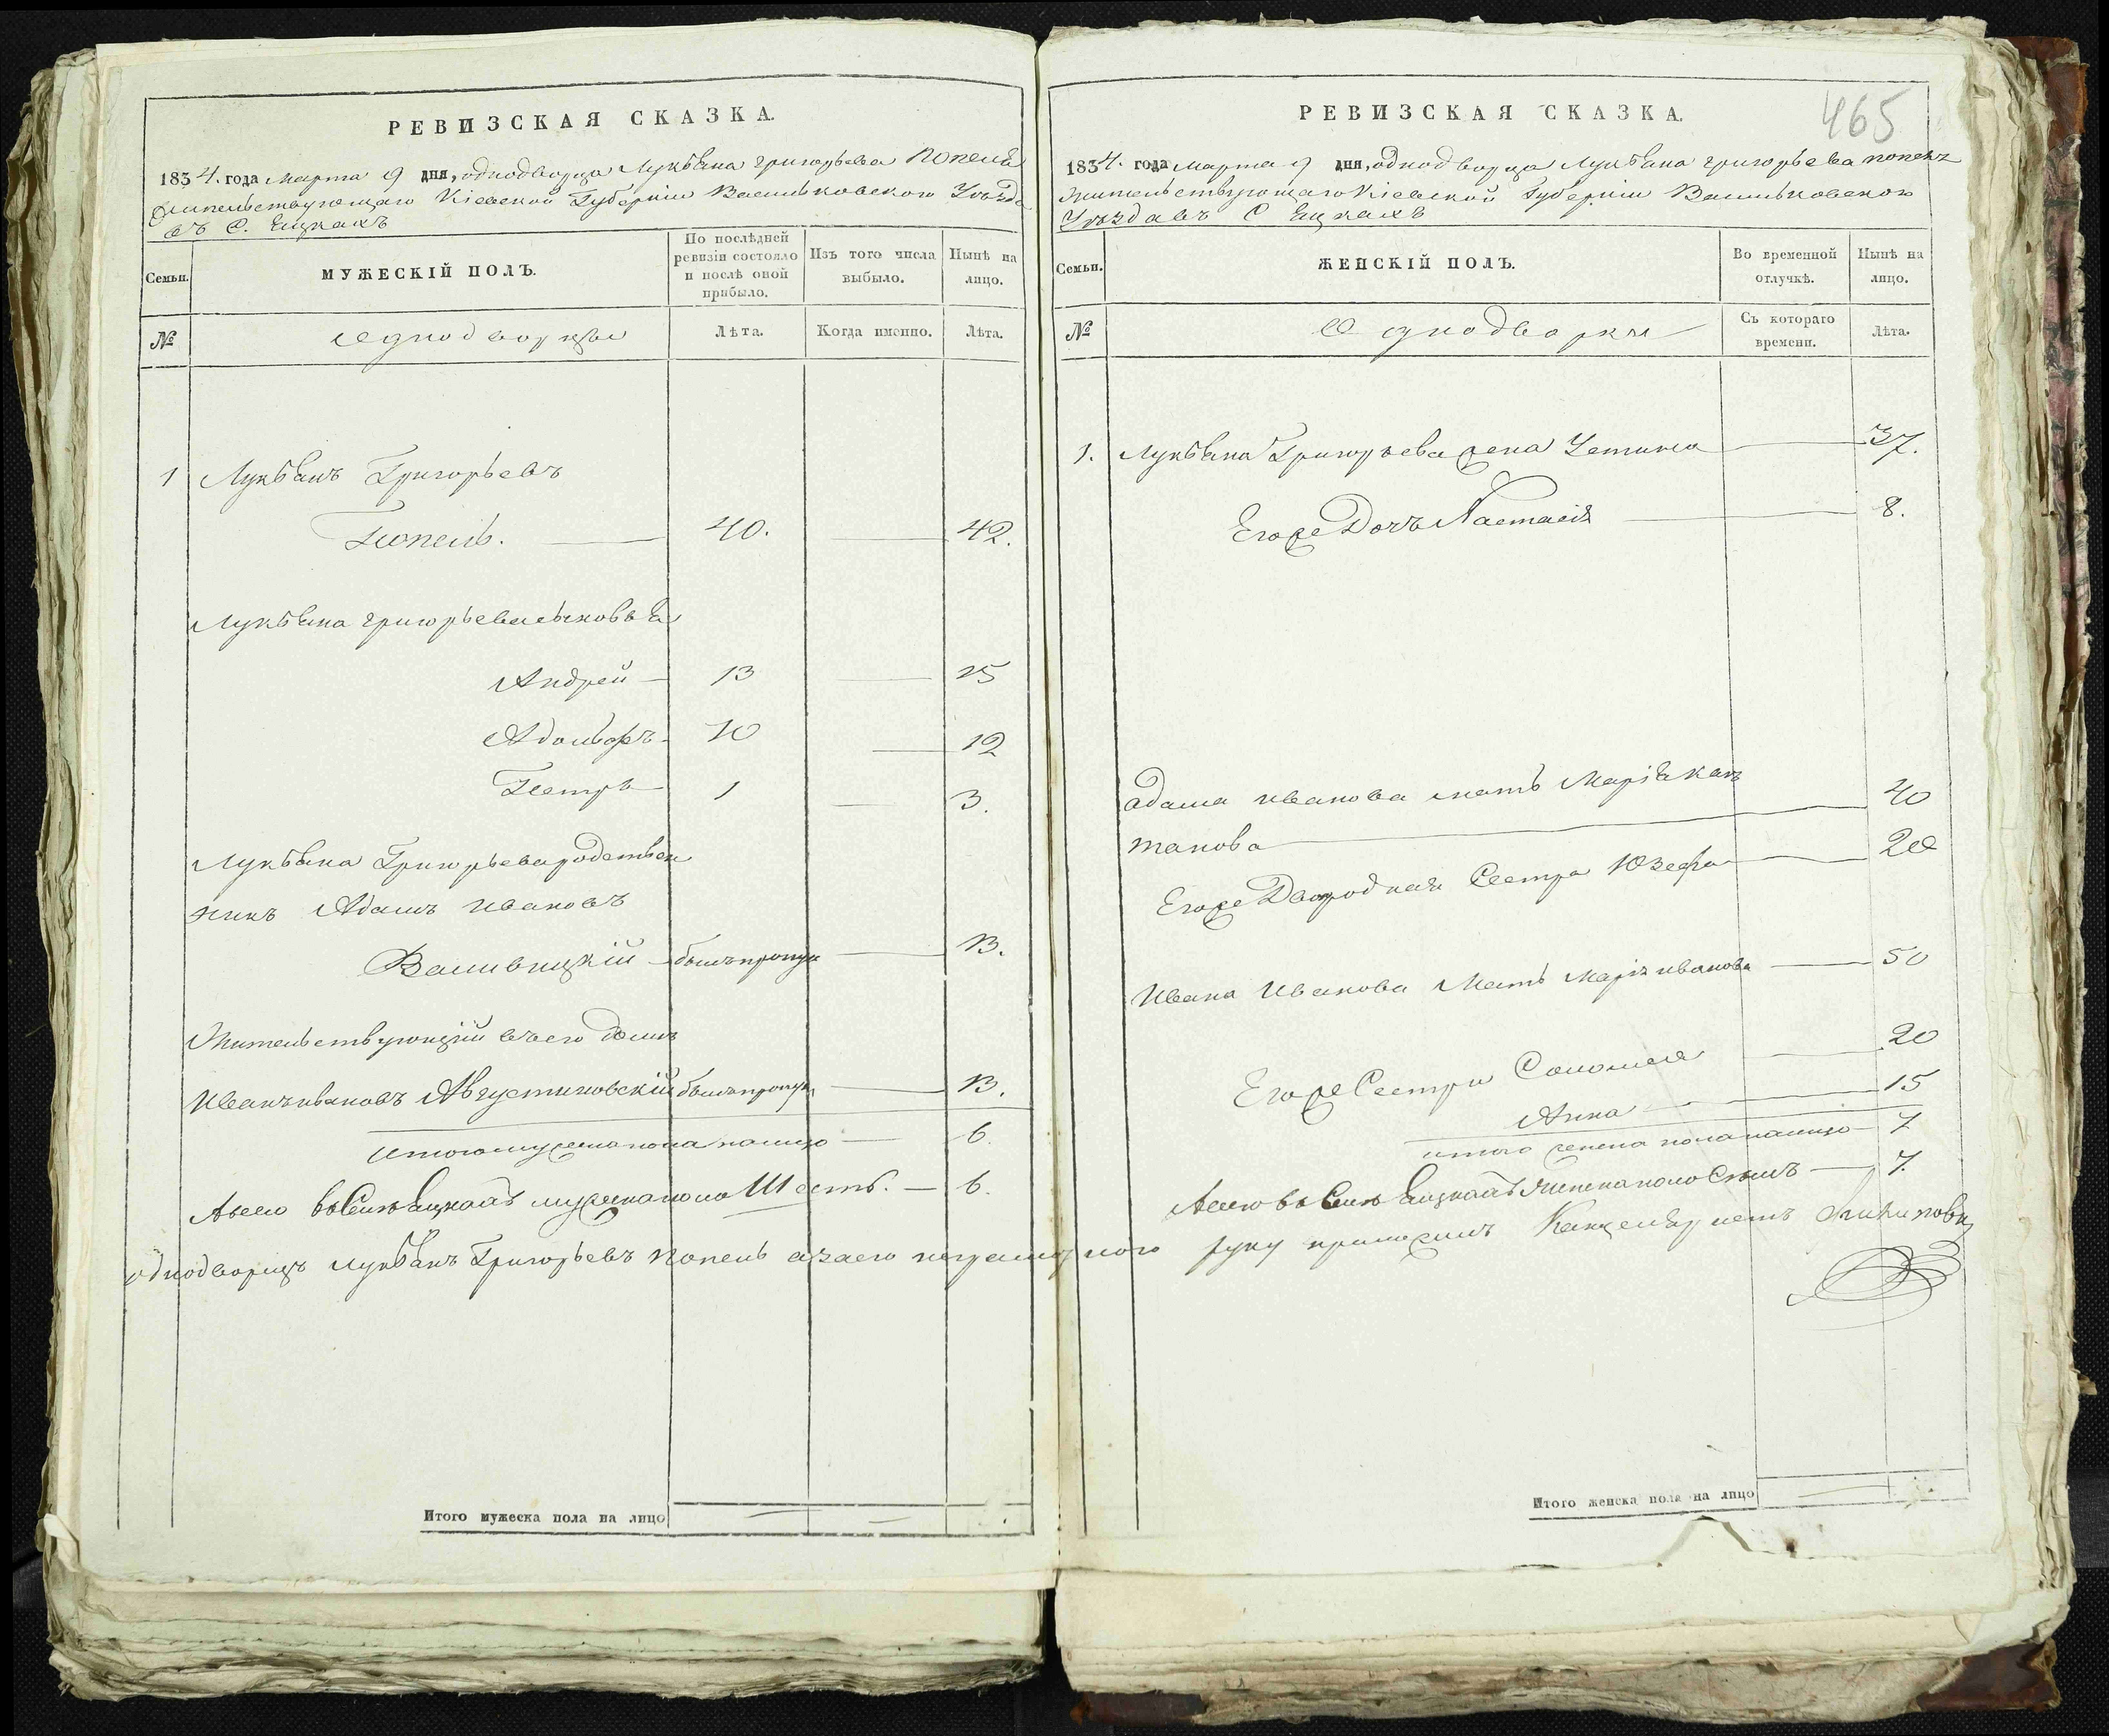 РЕВИЗСКАЯ СКАЗКА.
1834. года Марта 9 дня, однодворца Лукьяна Григорьева Попеля
жительствующаго Кіевской Губерніи Васильковского Уезда
въ С. Ецкахъ
Семьи.
МУЖЕСКІЙ ПОЛЪ.
По послѣдней ревизіи состояло и послѣ оной прибыло.
Изъ того числа выбыло.
Нынѣ на лицо.
№
Однодворцы
Лѣта.
Когда именно.
Лѣта.
1 Лукьянъ Григорьевъ
Попель. 40. 42.
Лукьяна Григорьева сыновья
Андрей 13 15
Адольфъ 10 12
Петръ 1 3.
Лукьяна Григорьева родствен
никъ Адамъ Ивановъ
былъ пропущ 13.
Жительствующій въ его доме
Иванъ Ивановъ Августиновскій былъ пропущ 13.
Итого мужеска пола налицо 6.
А всего въ Селе Ецкахъ мужеска пола Шесть. 6.
однодворецъ Лукьянъ Григорьевъ Попель а за его неграмотного руку приложилъ Канцеляристъ
Итого мужеска пола на лицо
465
РЕВИЗСКАЯ СКАЗКА.
1834. года Марта 9 дня, однодворца Лукьяна Григорьева Попеля
Жительствующаго Кіевской Губерніи Васильковского
Уезда въ С Ецкахъ
Семьи.
ЖЕНСКІЙ ПОЛЪ.
Во временной отлучкѣ.
Нынѣ на лицо.
№
Однодворки
Съ котораго времени.
Лѣта.
1. Лукьяна Григорьева жена 37.
Его же Дочь Настасія 8.
Адама Иванова мать Марія
танова 40
Его же Двоюродная Сестра Юзефа 20
Ивана Иванова Мать Марія Иванова 50
Его же Сестры Соломея 20
Анна 15
итого женска пола налицо 7
А всего въ Селе Ецкахъ женска пола Семь 7.
Итого женска пола на лицо